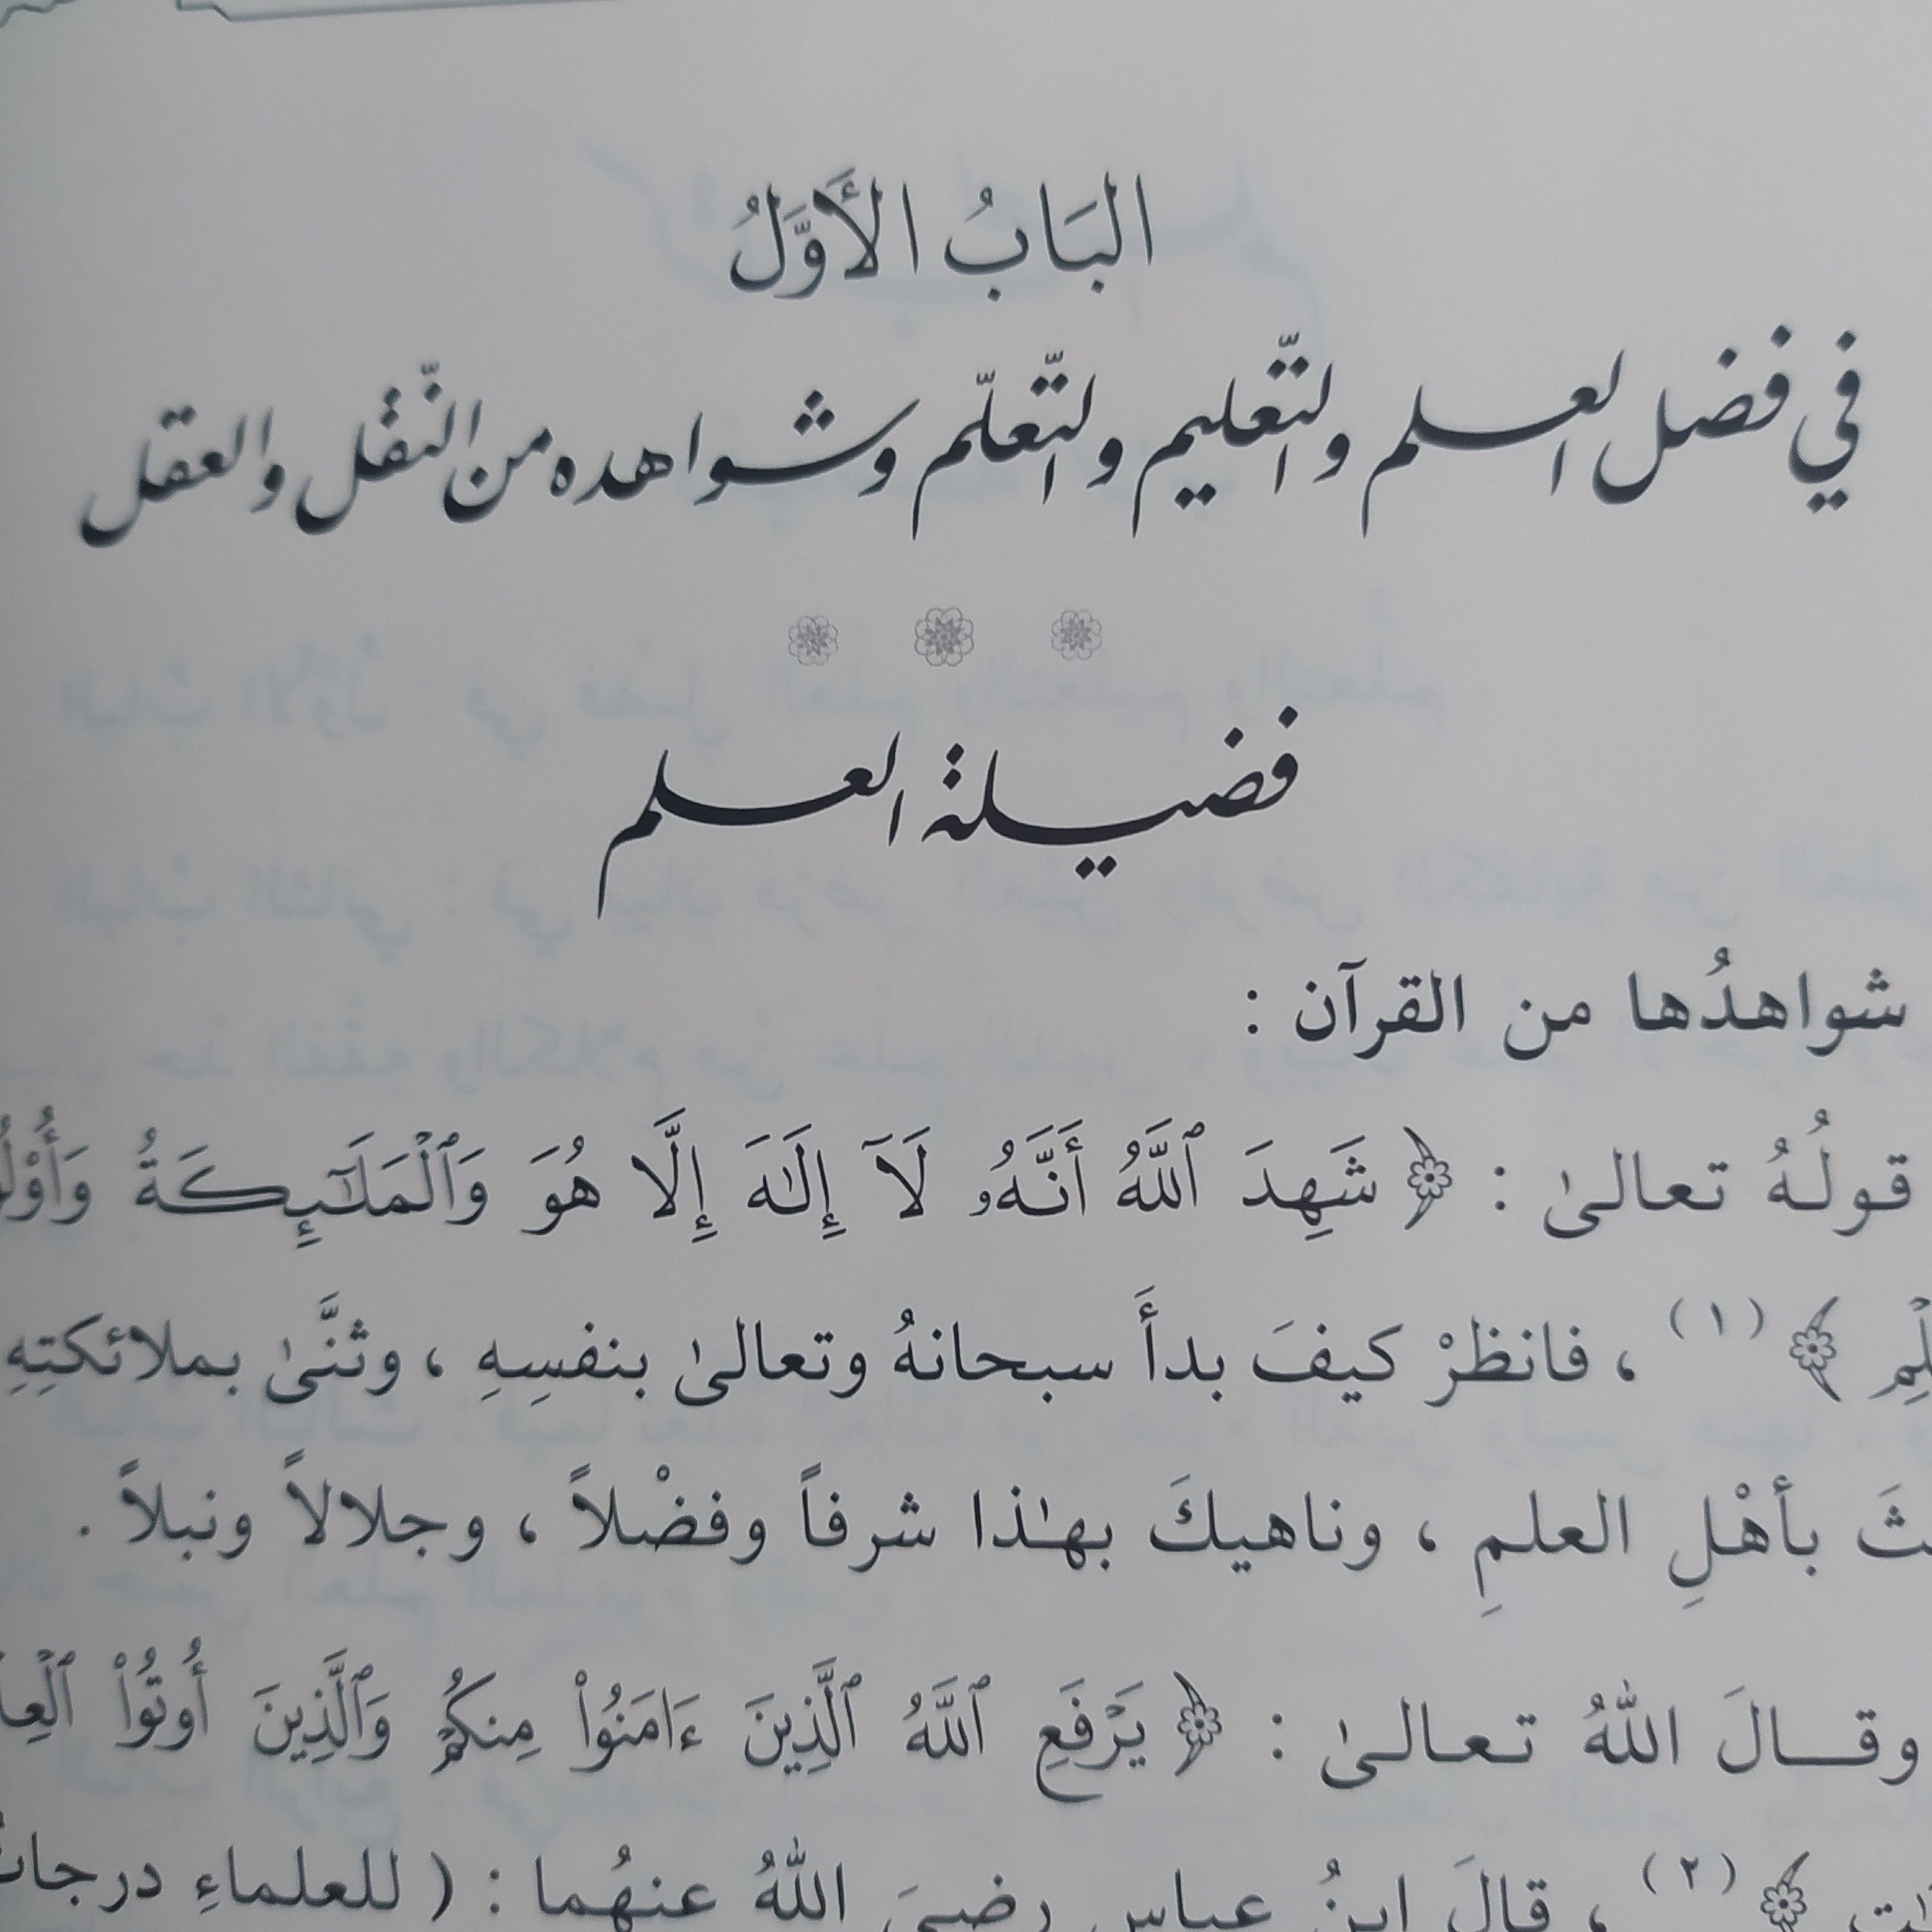 البَابُ الأَوَّلُ
في فضل العلم والتّعليم والتّعلّم وشواهده من النّقل والعقل
فضيلة العلم
شواهدُها من القرآن :
قولُهُ تعالىٰ : ﴿ شَهِدَ ٱللَّهُ أَنَّهُۥ لَآ إِلَٰهَ إِلَّا هُوَ وَٱلْمَلَـٰٓئِكَةُ
﴾ (١) ، فانظرْ كيفَ بدأَ سبحانهُ وتعالىٰ بنفسِهِ ، وثنَّىٰ بملائكتِهِ
بأهْلِ العلمِ ، وناهيكَ بهـٰذا شرفاً وفضْلاً ، وجلالاً ونبلاً .
وقـالَ اللهُ تـعـالـىٰ : ﴿ يَرْفَعِ ٱللَّهُ ٱلَّذِينَ ءَامَنُوا۟ مِنكُمْ وَٱلَّذِينَ أُوتُوا۟
﴾ (٢) ، قالَ ابنُ عباسٍ رضيَ اللهُ عنهُما : ( للعلماءِ